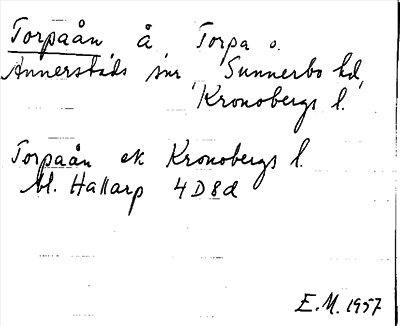 Torpaån å, Torpa o.
Annerstads snr, Sunnerbo hd,
Kronobergs l.
Torpaån ek Kronobergs l.
bl. Hallarp 4D8d
E.M. 1957